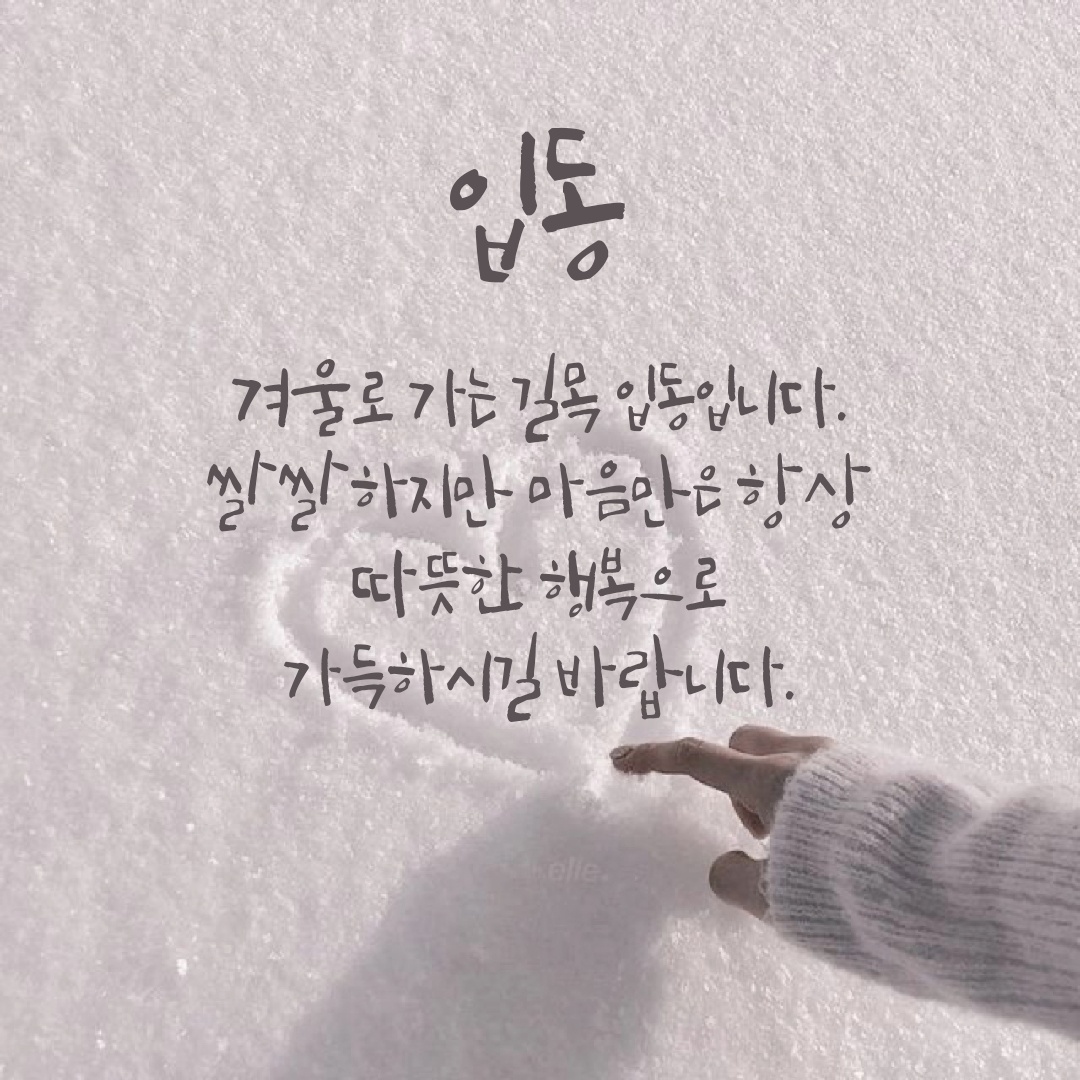 입동
겨울로 가는 길목 입동입니다.
쌀쌀하지만 마음만은 항상
따뜻한 행복으로
가득하시길 바랍니다.
elle